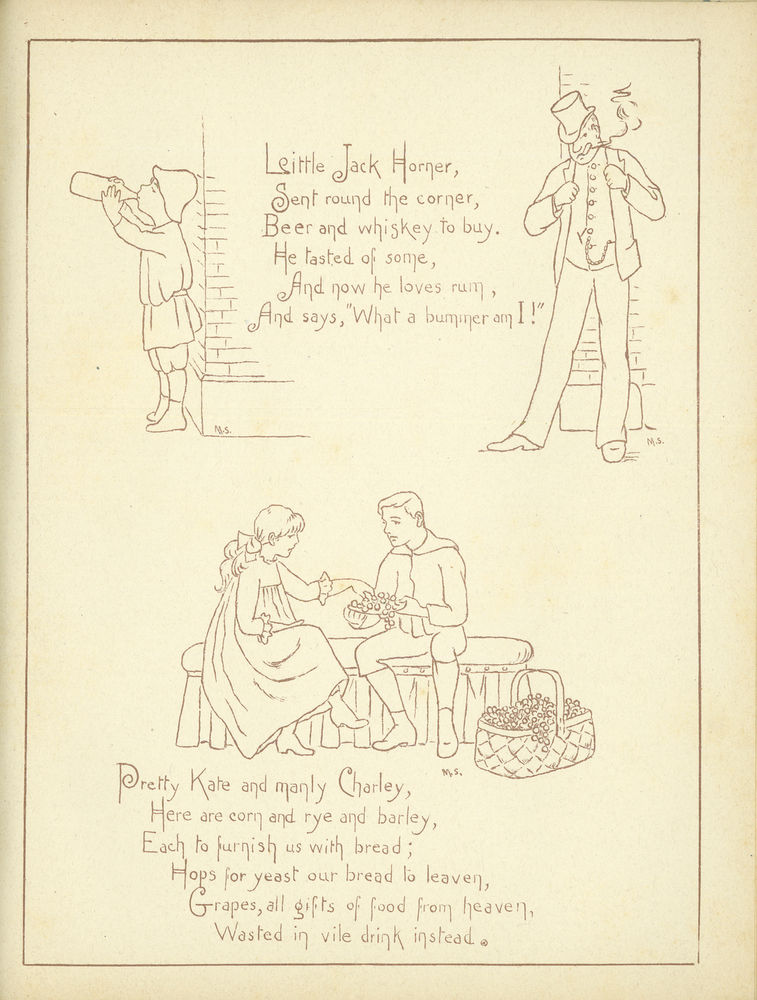 Little Jack Horner,
Sent round the corner,
Beer and whiskey to buy.
He tasted of some,
And now he loves rum,
And says, "What a bummer am I!"
M.S.
M.S.
M.S.
Pretty Kate and manly Charley,
Here are corn and rye and barley,
Each to furnish us with bread;
Hops for yeast our bread to leaven,
Grapes, all gifts of food from heaven,
Wasted in vile drink instead.